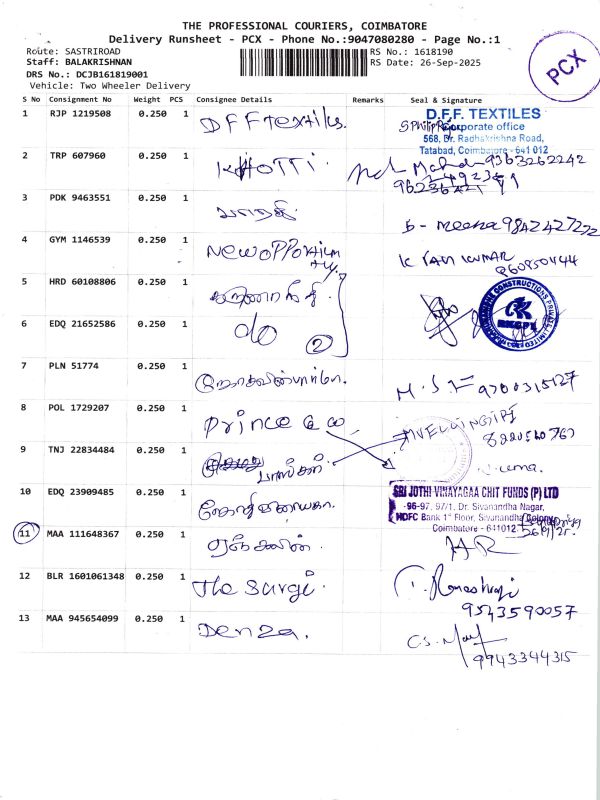 THE PROFESSIONAL COURIERS, COIMBATORE
Delivery Runsheet - PCX - Phone No.:9047080280 - Page No.:1
Route: SASTRIROAD
Staff: BALAKRISHNAN
DRS No.: DCJB161819001
Vehicle: Two Wheeler Delivery
RS No.: 1618190
RS Date: 26-Sep-2025
PCX
S No Consignment No Weight PCS Consignee Details Remarks Seal & Signature
1 RJP 1219508 0.250 1 DFF Textiles.
D.F.F. TEXTILES
Corporate office
568, Dr. Radhakrishna Road,
Tatabad, Coimbatore - 641 012
2 TRP 607960 0.250 1 KHOTTI. 9363262242
3 PDK 9463551 0.250 1 பாரதி. B - meena 9842427272
4 GYM 1146539 0.250 1 NEW OPPORTUNITY K RAM KUMAR
5 HRD 60108806 0.250 1
6 EDQ 21652586 0.250 1 do 2
7 PLN 51774 0.250 1 9700315127
8 POL 1729207 0.250 1 Prince & co MVELLINGIRI
9 TNJ 22834484 0.250 1 பாஸ்கர்
10 EDQ 23909485 0.250 1
SRI JOTHI VINAYAGAA CHIT FUNDS (P) LTD
96-97, 97/1, Dr. Sivanandha Nagar,
HDFC Bank 1st Floor, Sivanandha Colony,
Coimbatore - 641012
11 MAA 111648367 0.250 1
12 BLR 1601061348 0.250 1 The Surgi. 9543590057
13 MAA 945654099 0.250 1 Denza. 9943344315